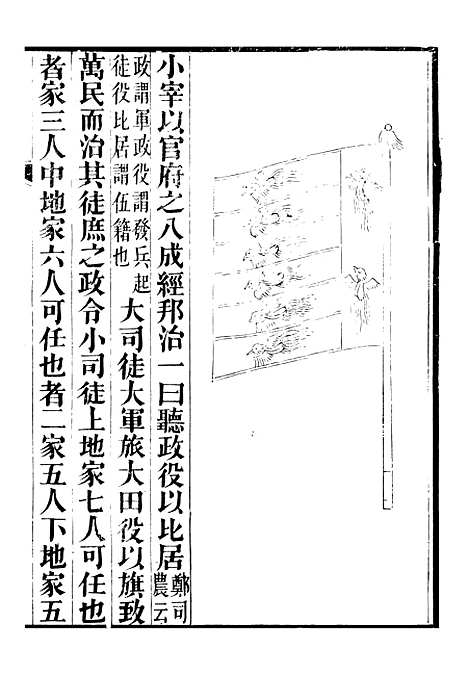 小宰以官府之八成經邦治一曰聽政役以比居鄭司農云
政謂軍政役謂發兵起徒役比居謂伍籍也大司徒大軍旅大田役以旗致
萬民而治其徒庶之政令小司徒上地家七人可任也
者家三人中地家六人可任也者二家五人下地家五